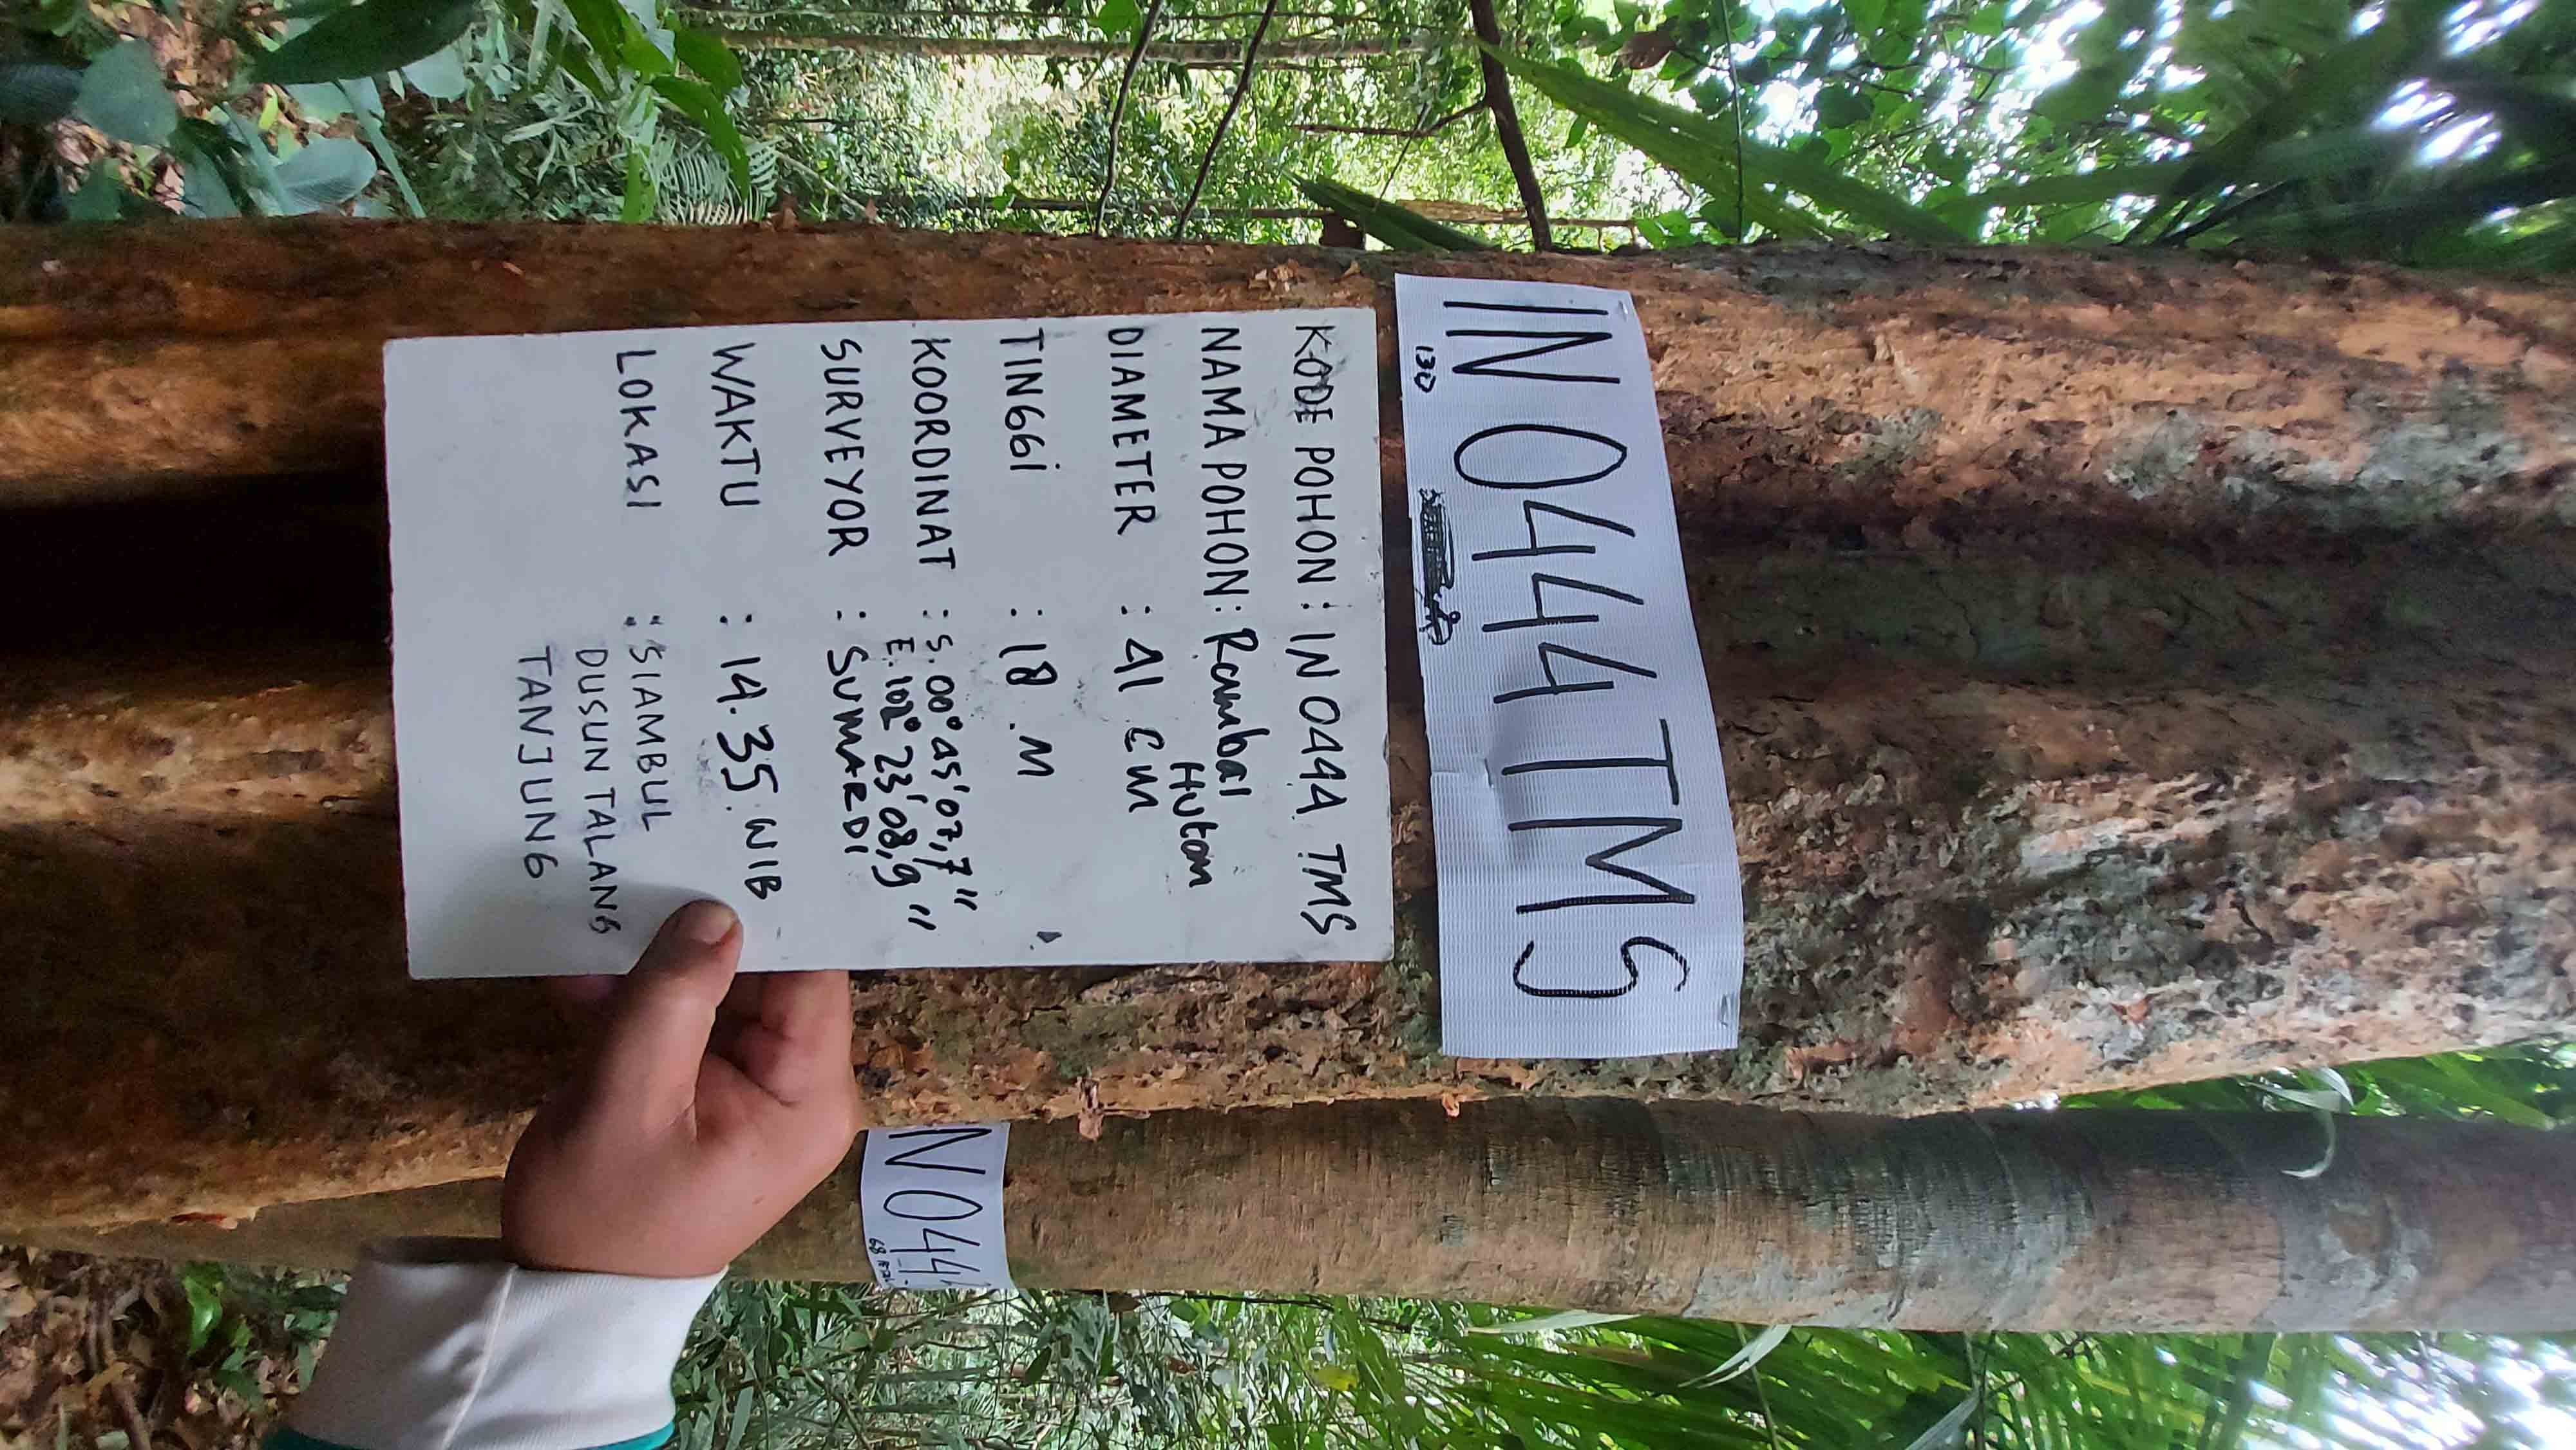 IN 0444 TMS
130
KODE POHON : IN 0444 TMS
NAMA POHON : Rambai Hutan
DIAMETER : 41 CM
TINGGI : 18 . M
KOORDINAT : S. 00° 45' 07,7"
E. 102° 23' 08,9"
SURVEYOR : SUMARDI
WAKTU : 14.35. WIB
LOKASI : SIAMBUL
DUSUN TALANG
TANJUNG
N 044
68